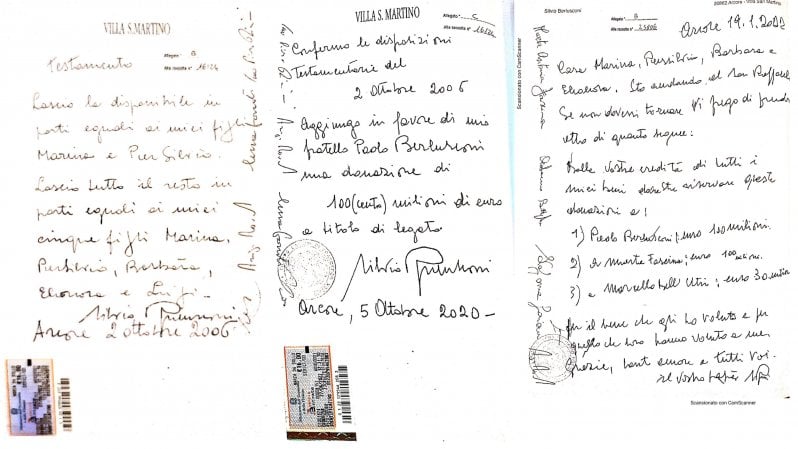 VILLA S. MARTINO
Allegato " B
Alla raccolta n° 16124
Testamento
Lascio la disponibile in
parti eguali ai miei figli
Marina e Pier Silvio.
Lascio tutto il resto in
parti eguali ai miei
cinque figli Marina,
Piersilvio, Barbara,
Eleonora e Luigi -
Silvio Berlusconi
Arcore 2 ottobre 2006
VILLA S. MARTINO
Allegato " C
Alla raccolta n° 16124
Confermo le disposizioni
Testamentarie del
2 Ottobre 2006
Aggiungo in favore di mio
fratello Paolo Berlusconi
una donazione di
100 (cento) milioni di euro
a titolo di legato
Silvio Berlusconi
Arcore, 5 Ottobre 2020 -
Silvio Berlusconi
Arcore - Villa San Martino
Allegato " B
Alla raccolta n°
Arcore 19.1.2022
Cara Marina, Piersilvio, Barbara e
Eleonora, Sto andando al San Raffaele
Se non dovessi tornare Vi prego di prendere
atto di quanto segue:
Dalle vostre eredità di tutti i
miei beni dovreste riservare queste
donazioni a:
1) Paolo Berlusconi; euro 100 milioni.
2) a Marta Fascina; euro 100 milioni.
3) a Marcello Dell'Utri; euro 30 milioni
per il bene che gli ho voluto e per
quello che loro hanno voluto a me.
Grazie, tanto amore a tutti voi.
il vostro papà
Scansionato con CamScanner
Scansionato con CamScanner